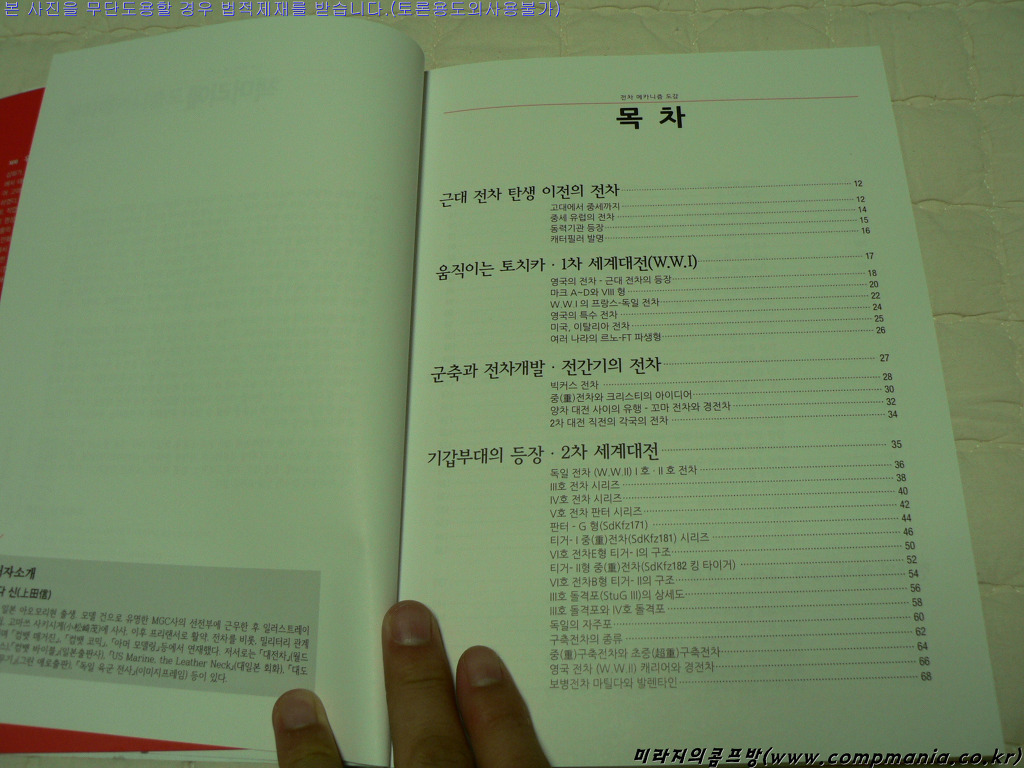 본 사진을 무단도용할 경우 법적제재를 받습니다.(토론용도외사용불가)
자소개
신(上田信)
일본 아오모리현 출생. 모델 건으로 유명한 MGC사의 선전부에 근무한 후 일러스트레이
고마쓰 사키시게(小松崎茂)에 사사, 이후 프리랜서로 활약. 전차를 비롯, 밀리터리 관계
『컴뱃 매거진』, 『컴뱃 코믹』, 『아머 모델링』등에서 연재했다. 저서로는 『대전차』(월드
『컴뱃 바이블』(일본출판사), 『US Marine, the Leather Neck』(대일본 회화), 『대도
』(그린 애로출판), 『독일 육군 전사』(이미지프레임) 등이 있다.
전차 메카니즘 도감
목 차
근대 전차 탄생 이전의 전차 12
고대에서 중세까지 12
중세 유럽의 전차 14
동력기관 등장 15
캐터필러 발명 16
움직이는 토치카 · 1차 세계대전(W.W.I) 17
영국의 전차 - 근대 전차의 등장 18
마크 A~D와 VIII 형 20
W.W.I 의 프랑스-독일 전차 22
영국의 특수 전차 24
미국, 이탈리아 전차 25
여러 나라의 르노-FT 파생형 26
군축과 전차개발 · 전간기의 전차 27
빅커스 전차 28
중(重)전차와 크리스티의 아이디어 30
양차 대전 사이의 유행 - 꼬마 전차와 경전차 32
2차 대전 직전의 각국의 전차 34
기갑부대의 등장 · 2차 세계대전 35
독일 전차 (W.W.II) I 호 · II 호 전차 36
III호 전차 시리즈 38
IV호 전차 시리즈 40
V호 전차 판터 시리즈 42
판터 - G 형(SdKfz171) 44
티거- I 중(重)전차(SdKfz181) 시리즈 46
VI호 전차E형 티거- I의 구조 50
티거- II형 중(重)전차(SdKfz182 킹 타이거) 52
VI호 전차B형 티거- II의 구조 54
III호 돌격포(StuG III)의 상세도 56
III호 돌격포와 IV호 돌격포 58
독일의 자주포 60
구축전차의 종류 62
중(重)구축전차와 초중(超重)구축전차 64
영국 전차 (W.W.II) 캐리어와 경전차 66
보병전차 마틸다와 발렌타인 68
미라지의콤프방(www.compmania.co.kr)